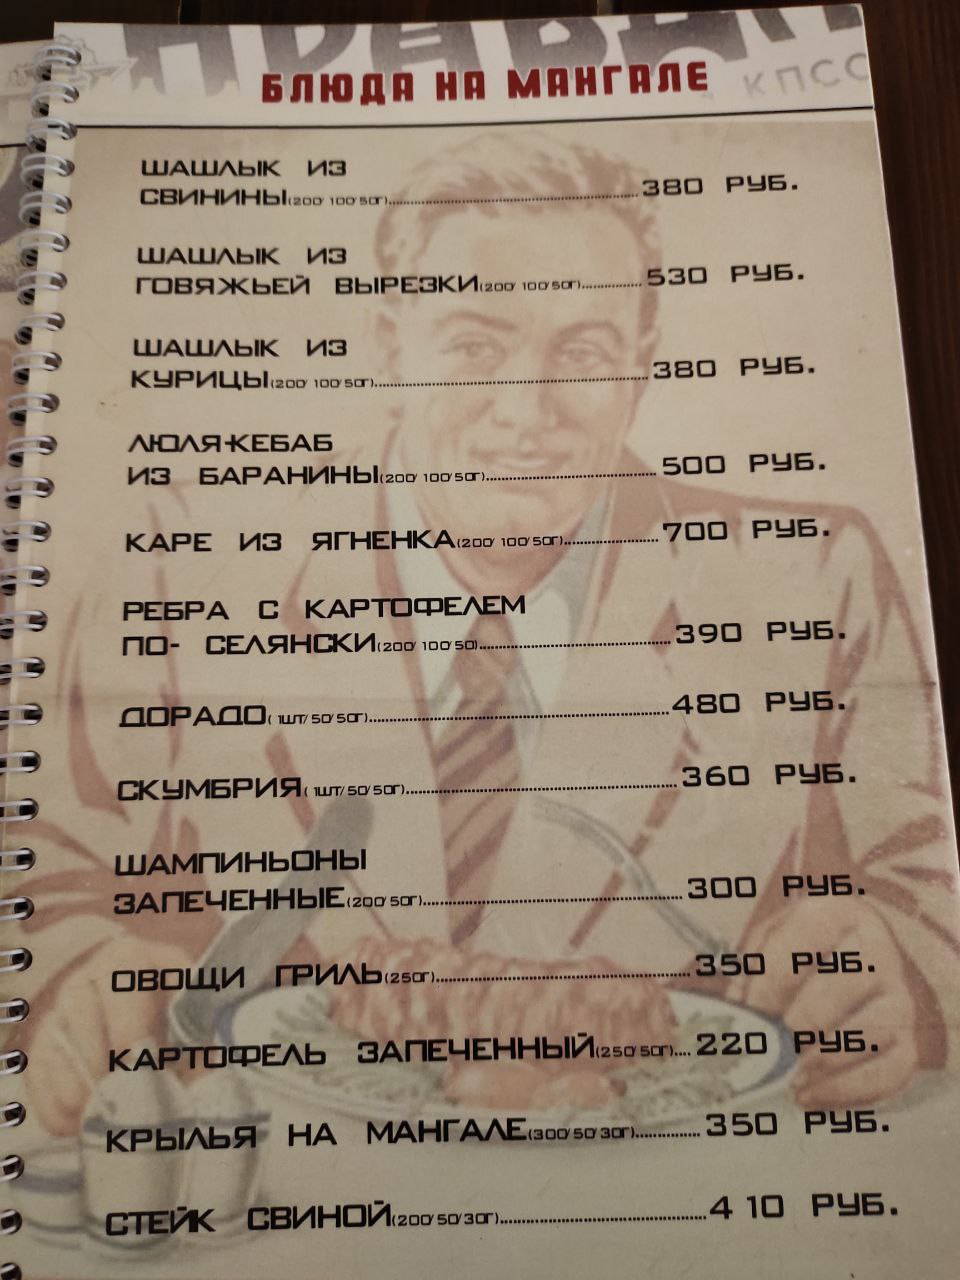 ПРАВДА
КПСС
БЛЮДА НА МАНГАЛЕ
ШАШЛЫК ИЗ
СВИНИНЫ(200/100/50Г)..........380 РУБ.
ШАШЛЫК ИЗ
ГОВЯЖЬЕЙ ВЫРЕЗКИ(200/100/50Г)..........530 РУБ.
ШАШЛЫК ИЗ
КУРИЦЫ(200/100/50Г)..........380 РУБ.
ЛЮЛЯ-КЕБАБ
ИЗ БАРАНИНЫ(200/100/50Г)..........500 РУБ.
КАРЕ ИЗ ЯГНЕНКА(200/100/50Г)..........700 РУБ.
РЕБРА С КАРТОФЕЛЕМ
ПО- СЕЛЯНСКИ(200/100/50)..........390 РУБ.
ДОРАДО( 1ШТ/50/50Г)..........480 РУБ.
СКУМБРИЯ( 1ШТ/50/50Г)..........360 РУБ.
ШАМПИНЬОНЫ
ЗАПЕЧЕННЫЕ(200/50Г)..........300 РУБ.
ОВОЩИ ГРИЛЬ(250Г)..........350 РУБ.
КАРТОФЕЛЬ ЗАПЕЧЕННЫЙ(250/50Г)....220 РУБ.
КРЫЛЬЯ НА МАНГАЛЕ(300/50/30Г)..........350 РУБ.
СТЕЙК СВИНОЙ(200/50/30Г)..........410 РУБ.